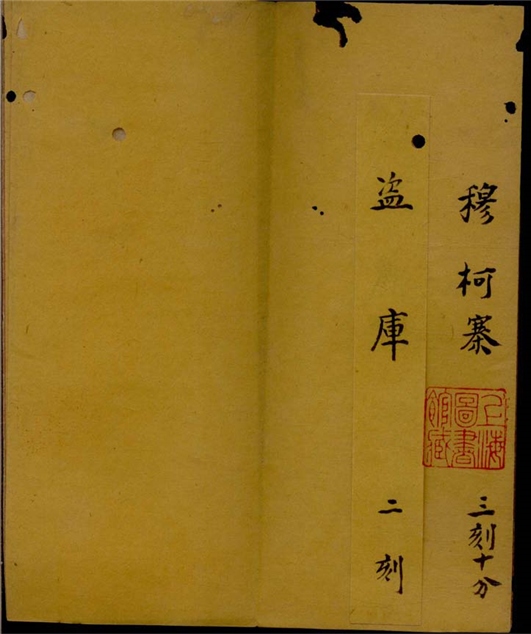 穆柯寨 三刻十分
盗庫 二刻
上海圖書館藏